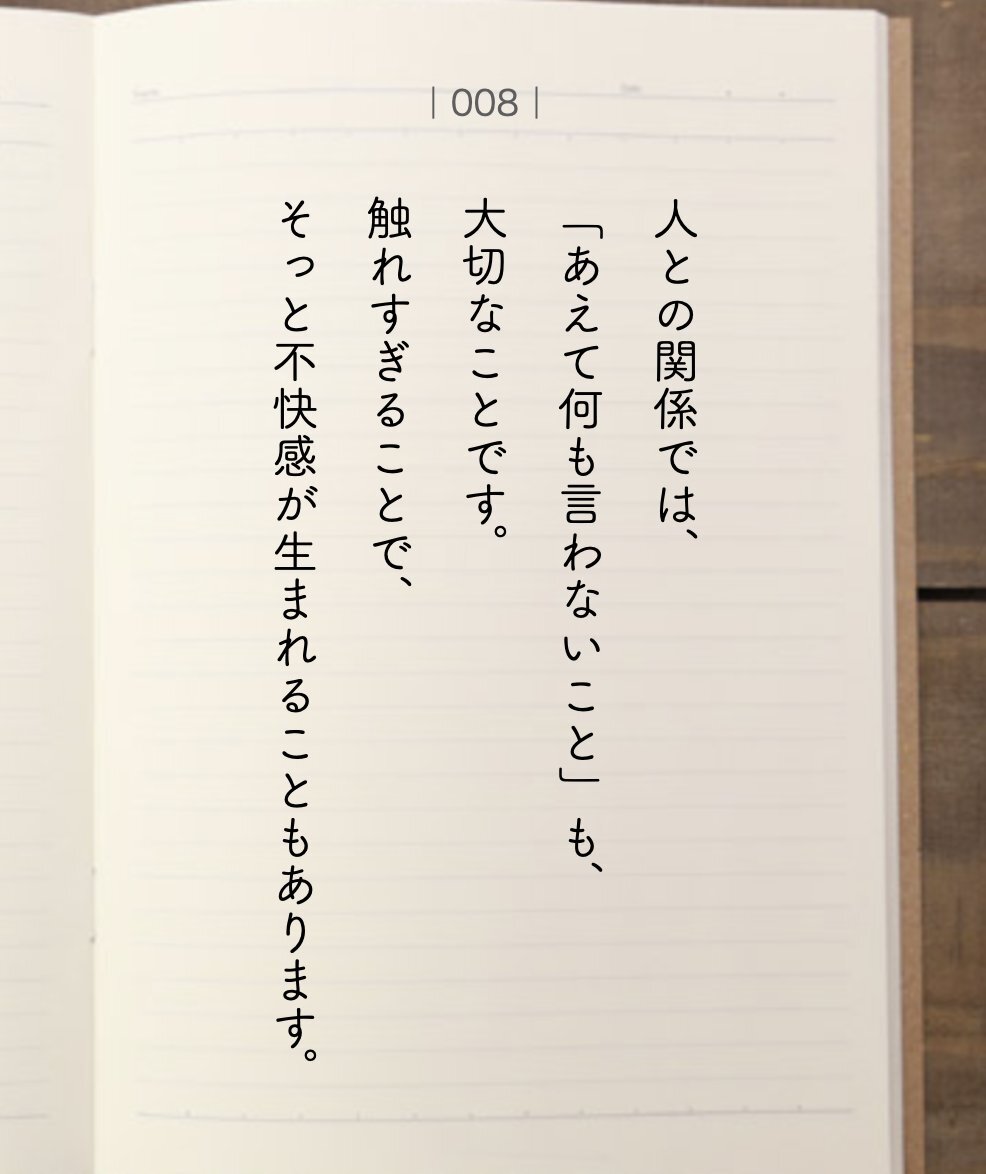 | 008 |
人との関係では、
「あえて何も言わないこと」も、
大切なことです。
触れすぎることで、
そっと不快感が生まれることもあります。